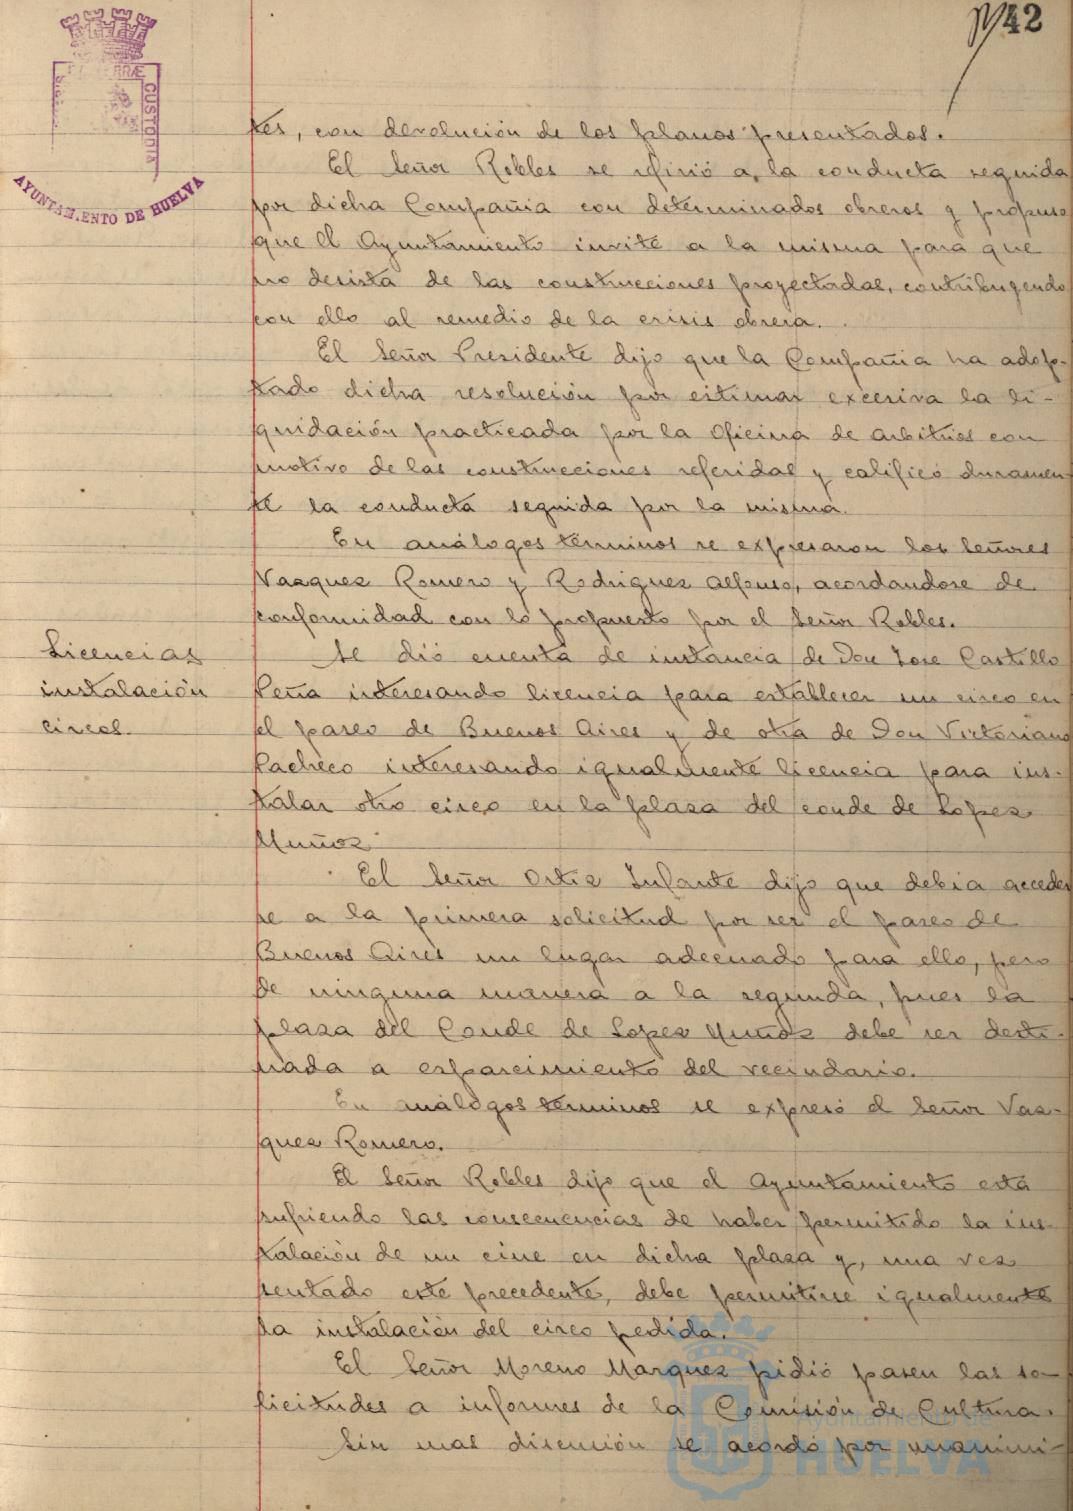 42
PORTUS
TERRÆ
CUSTODIA
AYUNTAMIENTO DE HUELVA
tes, con devolución de los planos presentados.
El Señor Robles se refirió a la conducta seguida
por dicha Compañia con determinados obreros y propuso
que el Ayuntamiento invite a la misma para que
no desista de las construcciones proyectadas, contribuyendo
con ello al remedio de la crisis obrera.
El Señor Presidente dijo que la Compañia ha adop-
tado dicha resolución por estimar excesiva la li-
quidación practicada por la Oficina de arbitrios con
motivo de las construcciones referidas y calificó duramen-
te la conducta seguida por la misma.
En análogos términos se expresaron los Señores
Vazquez Romero y Rodriguez Alfonso, acordandose de
conformidad con lo propuesto por el Señor Robles.
Licencias
instalación
circos.
Se dió cuenta de instancia de Don Jose Castillo
Peña interesando licencia para establecer un circo en
el paseo de Buenos Aires y de otra de Don Victoriano
Pacheco interesando igualmente licencia para ins-
talar otro circo en la plaza del conde de Lopez
Muñoz
El Señor Ortiz Infante dijo que debia acceder
se a la primera solicitud por ser el paseo de
Buenos Aires un lugar adecuado para ello, pero
de ninguna manera a la segunda, pues la
plaza del Conde de Lopez Muñoz debe ser desti-
nada a esparcimiento del vecindario.
En análogos términos se expresó el Señor Vaz-
quez Romero.
El Señor Robles dijo que el Ayuntamiento está
sufriendo las consecuencias de haber permitido la ins-
talación de un cine en dicha plaza y, una vez
sentado este precedente, debe permitirse igualmente
la instalación del circo pedida.
El Señor Moreno Marquez pidió pasen las so-
licitudes a informes de la Comisión de Cultura.
Sin mas discusión se acordó por unanimi-
Ayuntamiento de
HUELVA